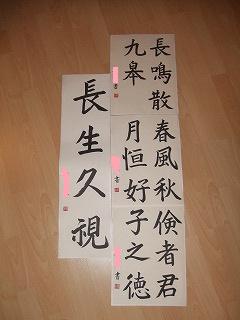 長鳴散
九皋
書
春風秋
月恒好
書
倹者君
子之徳
書
長生久視